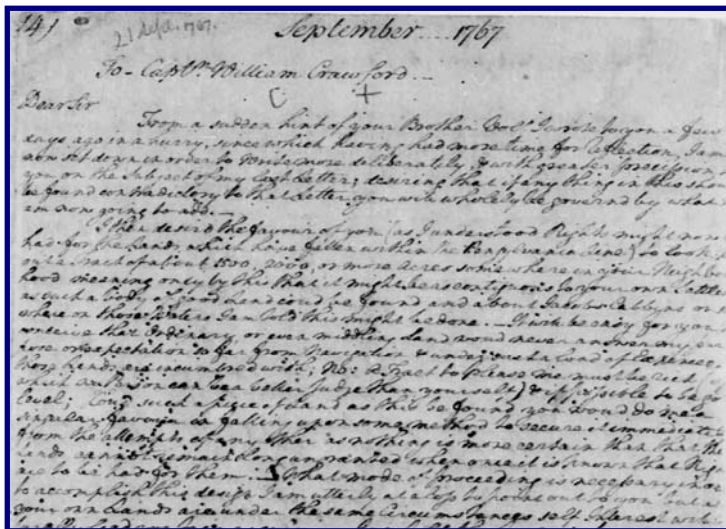 141 21 Sept. 1767. September .... 1767
To - Capt.n William Crawford -
Dear Sir
From a sudden hint of your Brother I wrote to you a few
days ago in a hurry, since which having had more time for reflection, I am
now set down in order to write more deliberately, & with greater precision,
you on the Subject of my last Letter; desiring that if any thing in this shou
be found contradictory to that Letter you will wholely be governd by what
am now going to add. -
I then desird the favour of you (as I understood Rights might now
had for the Lands, which have fallen within the Pensylvania Line) to look
out a Tract of about 1500, 2000, or more acres somewhere in your Neighbr
hood meaning only by this that it might be as contiguous to your own Settle
as such a body of good Land coud be found and about Jacobs Cabbins or
where on those Waters I am told this might be done. - It will be easy for you
conceive that Ordinary, or even middling Land woud never answer my pur
pose or expectation so far from Navigation & under such a load of Expence
those Lands are incumbred with; No: A Tract to please me must be rich (
which no Person can be a better Judge than yourself) & if possible to be go
level; Coud such a piece of Land as this be found you woud do me a
singular favour in falling upon some method to secure it immediate
from the attempts of any other as nothing is more certain than that the
Lands cannot remain long ungranted when once it is known that Rig
are to be had for them. - What mode of proceeding is necessary in or
to accomplish this design I am utterly at a loss to point out to you but as
your own Lands are under the same Circumstances self Interest will